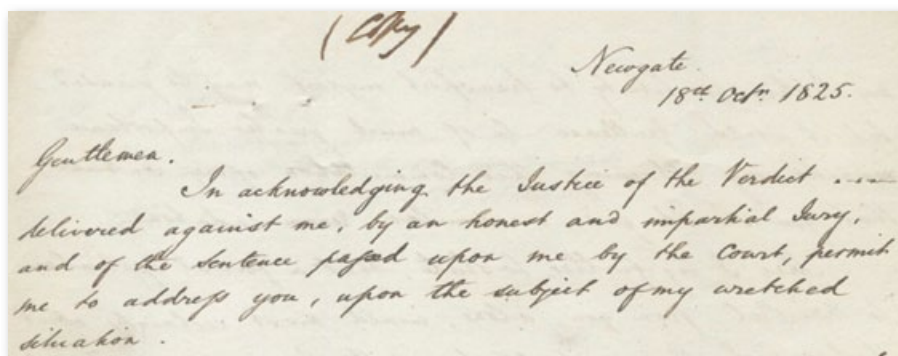 (Copy)
Newgate.
18th Octr 1825.
Gentlemen.
In acknowledging the Justice of the Verdict ....
delivered against me, by an honest and impartial Jury,
and of the Sentence passed upon me by the Court, permit
me to address you, upon the subject of my wretched
situation.